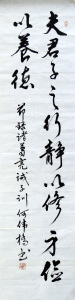 夫君子之行静以修身俭
以养德
节录诸葛亮诫子训何伟梅书